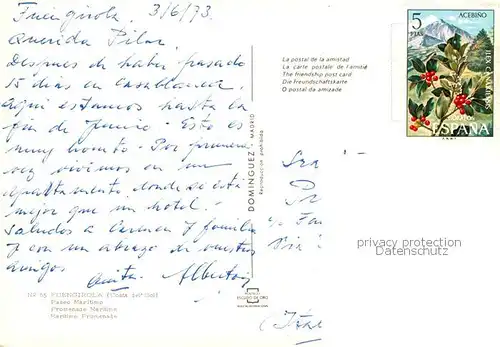 Fuengirola, 3/6/73.
Querida Pilar:
Despues de haber pasado
15 dias en Casablanca,
aqui estamos hasta la
fin de Junio. Esto es
muy bonito. Por primera
vez vivimos en un
apartamento donde se está
mejor que un hotel.
Saludos a Carmen y familia
y con un abrazo de vuestros
amigos
Alberto
FUENGIROLA (Costa del Sol)
Paseo Marítimo
Promenade Maritime
Maritime Promenade
DOMINGUEZ - MADRID
Reproduccion prohibida
La postal de la amistad
La carte postale de l'amitié
The friendship post card
Die Freundschaftskarte
O postal da amizade
5
PTAS
ACEBIÑO
ESPAÑA
privacy protection
Datenschutz